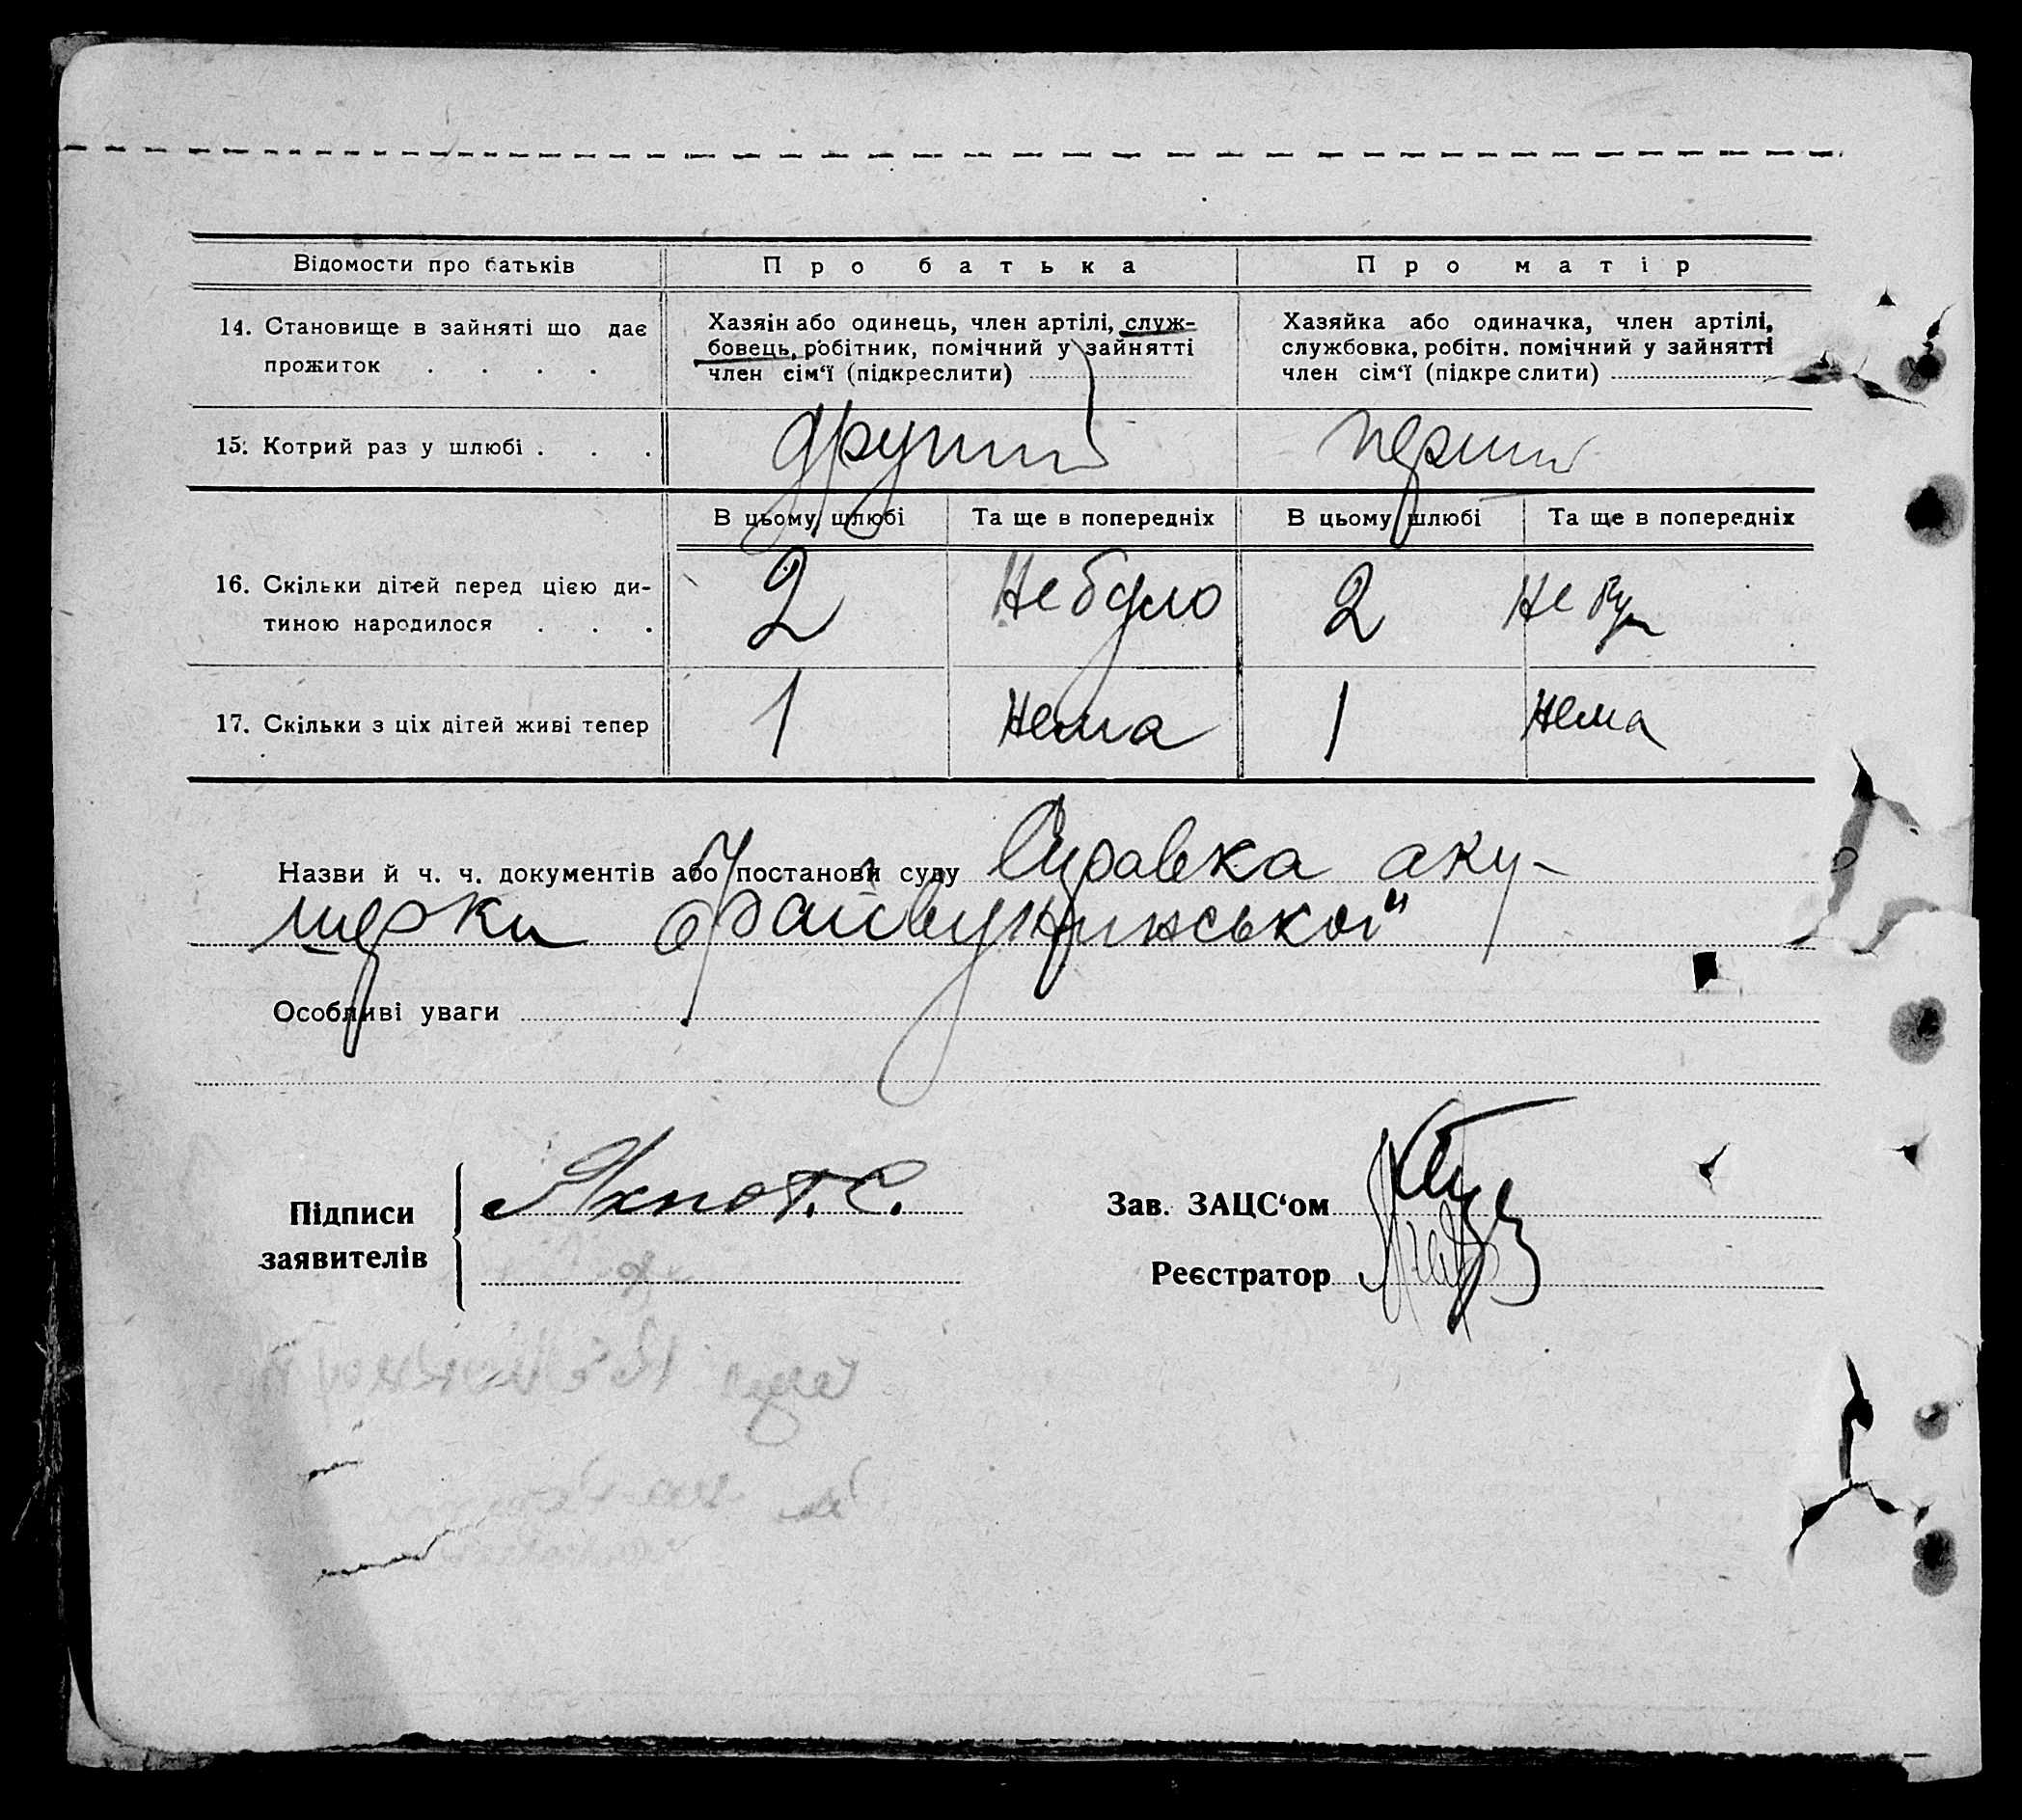 Відомости про батьків
Про батька
Про матір
14. Становище в зайняті що дає
прожиток . . . .
Хазяін або одинець, член артілі, служ-
бовець, робітник, помічний у зайнятті
член сім‘ї (підкреслити)
Хазяйка або одиначка, член артілі,
службовка, робітн. помічний у зайнятті
член сім‘ї (підкреслити)
15. Котрий раз у шлюбі . . .
другий
перший
В цьому шлюбі
Та ще в попередніх
В цьому шлюбі
Та ще в попередніх
16. Скільки дітей перед цією ди-
тиною народилося . . .
2
Не було
2
Не
17. Скільки з ціх дітей живі тепер
1
Нема
1
Нема
Назви й ч. ч. документів або постанови суду Справка аку-
шерки
Особливі уваги
Підписи
заявителів
Яхнот. С.
Зав. ЗАЦС‘ом
Реєстратор